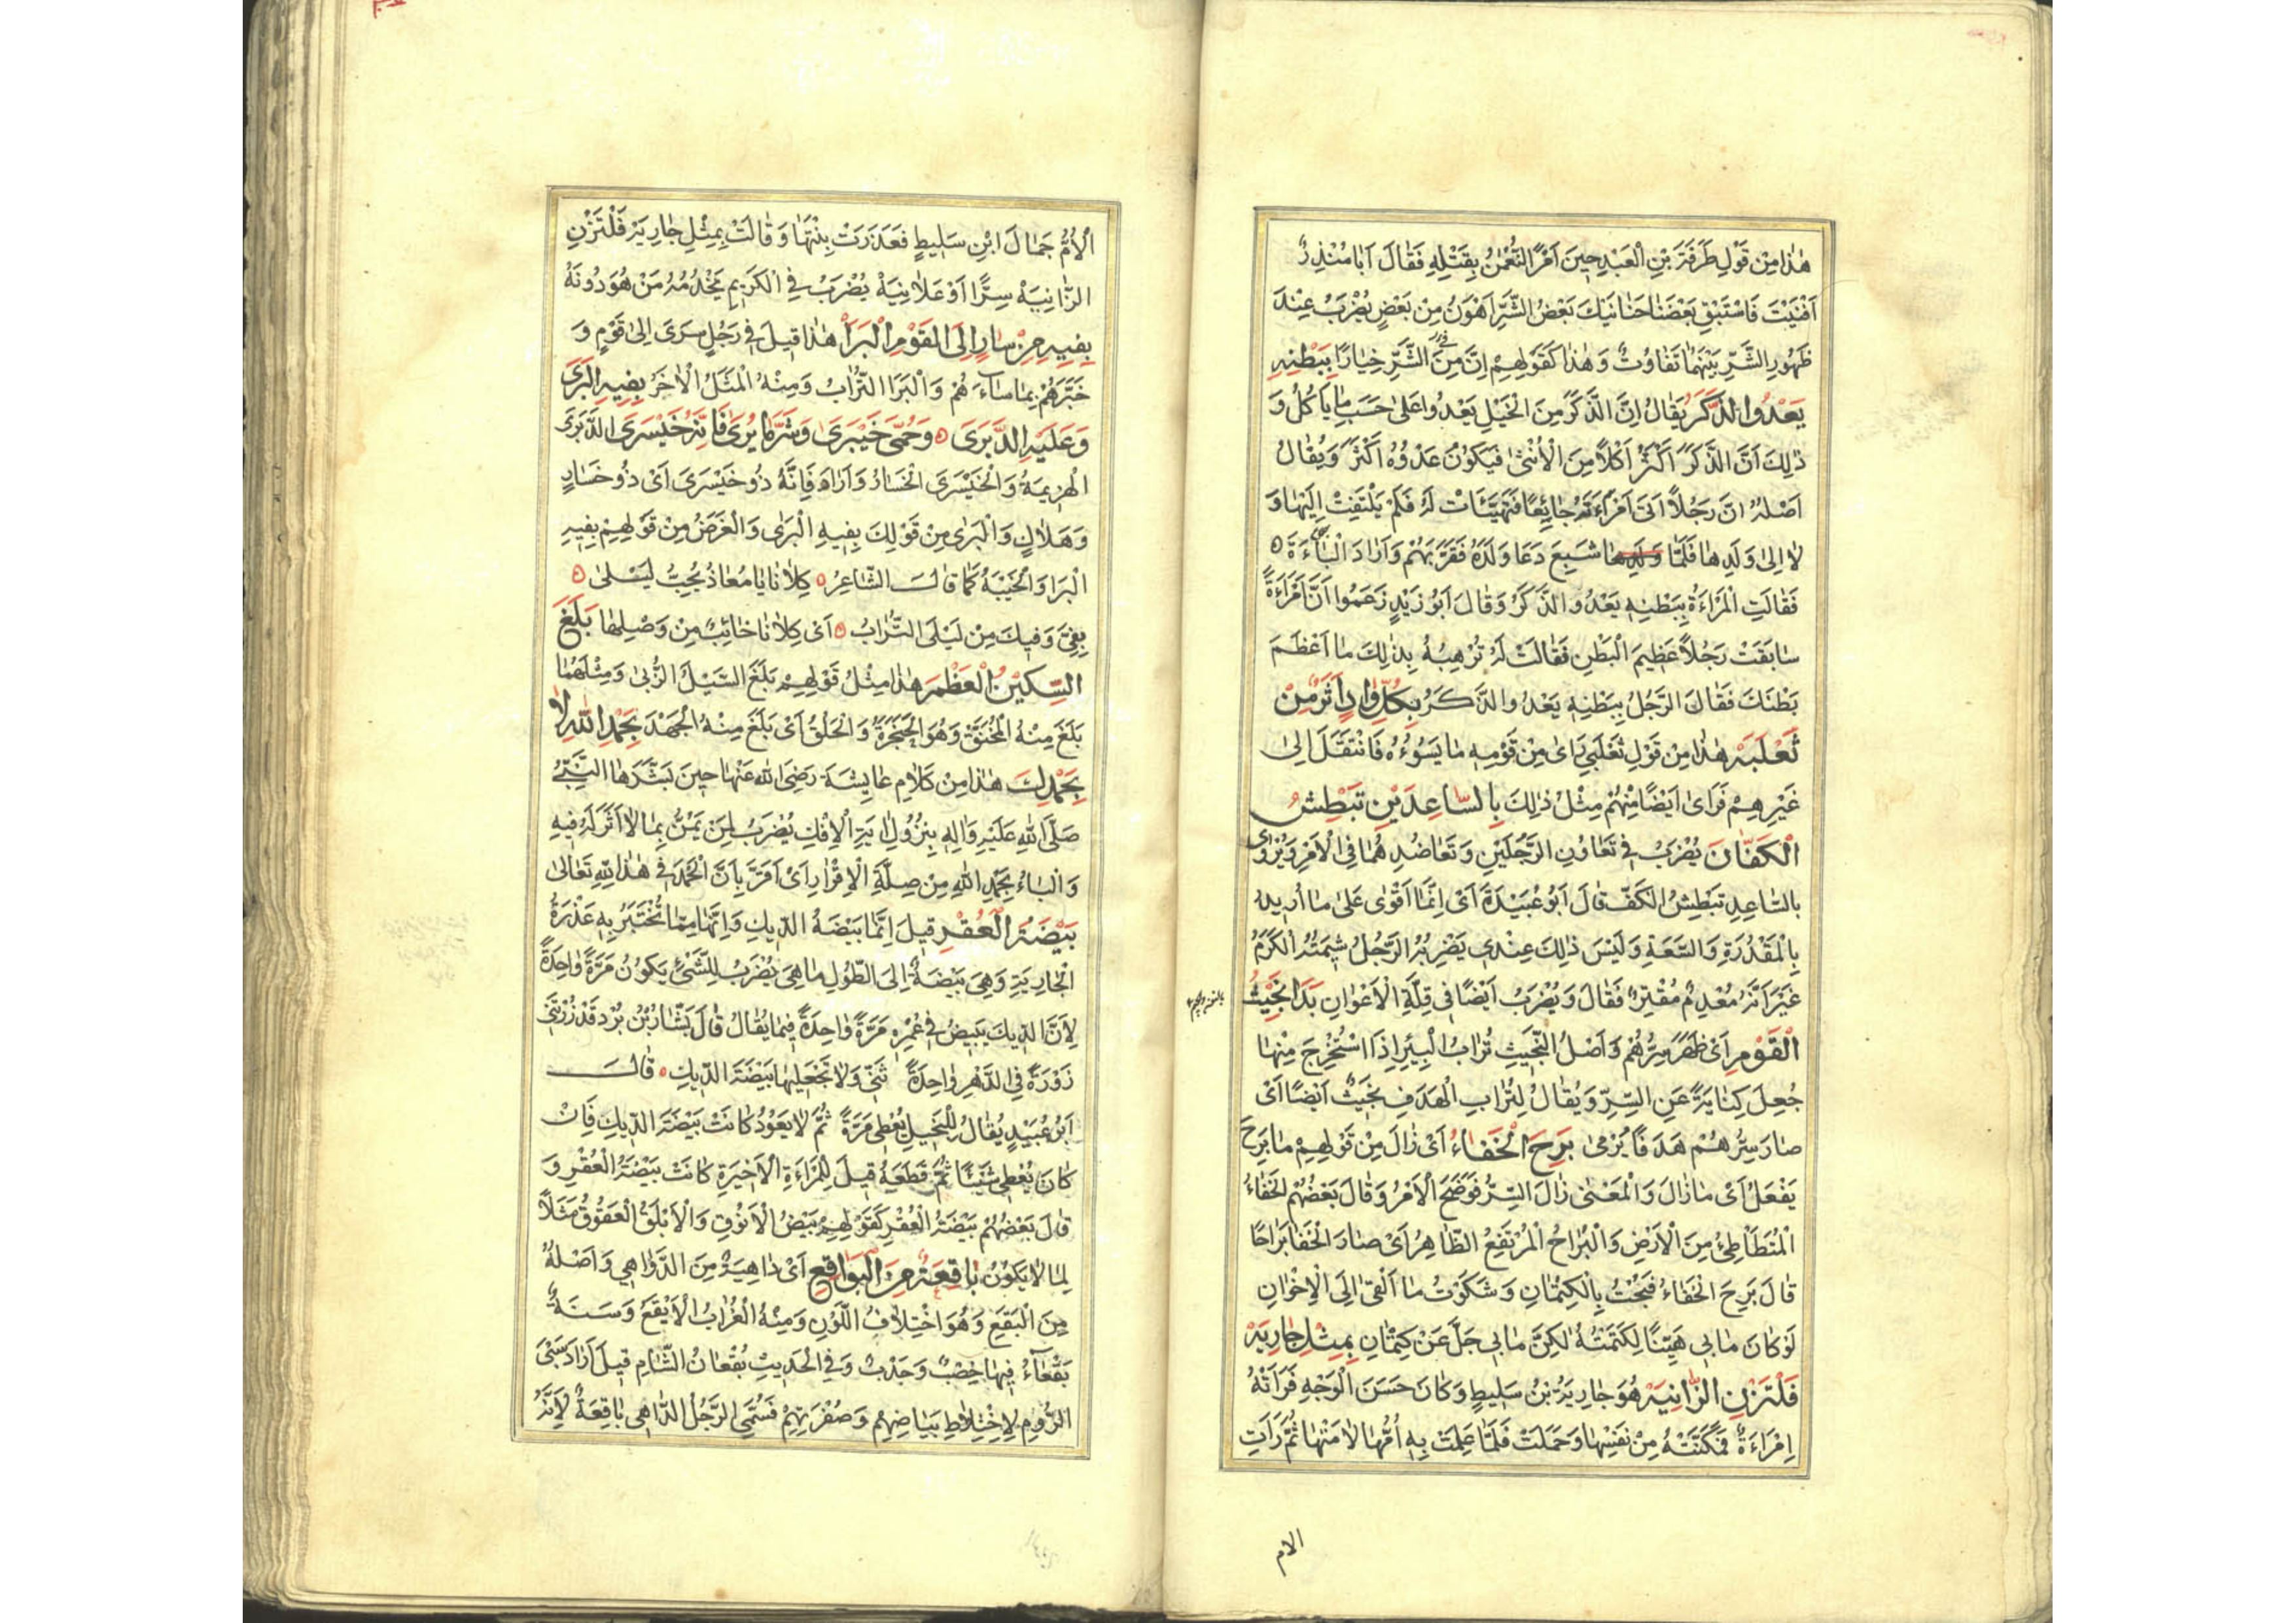 هٰذا مِنْ قَوْلِ طَرَفَةَ بْنِ الْعَبْدِ حِينَ اَمَرَ النُّعْمٰنُ بِقَتْلِهِ فَقٰالَ اَبٰا مُنْذِرٍ
اَفْنَيْتَ فَاسْتَبْقِ بَعْضَنٰا حَنٰانَيْكَ بَعْضُ الشَّرِّ اَهْوَنُ مِنْ بَعْضٍ يُضْرَبُ عِنْدَ
ظُهُورِ الشَّرِّ بَيْنَهُمٰا تَفٰاوُتٌ وَهٰذا كَقَوْلِهِمْ اِنَّ مِنَ الشَّرِّ خِيٰارًا بِبَطْنِهِ
يَعْدُوا الذَّكَرُ يُقٰالُ اِنَّ الذَّكَرَ مِنَ الْخَيْلِ يَعْدُوا عَلىٰ حَسَبِ مٰا يَاكُلُ وَ
ذٰلِكَ اَنَّ الذَّكَرَ اَكْثَرُ اَكْلاً مِنَ الْاُنْثىٰ فَيَكُونُ عَدْوُهُ اَكْثَرَ وَيُقٰالُ
اَصْلُهُ انَّ رَجُلاً اَتىَ امْرَاَتَهُ جٰائِعًا فَتَهَيَّئَاتْ لَهُ فَلَمْ يَلْتَفِتْ اِلَيْهٰا وَ
لٰا اِلىٰ وَلَدِهٰا فَلَمّٰا شَبِعَ دَعٰا وَلَدَهُ فَقَرَّبَهُمْ وَاَرٰادَ الْبٰاءَةَ
فَقٰالَتِ الْمَرْاءَةُ بِبَطْنِهِ يَعْدُو الذَّكَرُ وَقٰالَ اَبُو زَيْدٍ زَعَمُوا اَنَّ امْرَاءَةً
سٰابَقَتْ رَجُلاً عَظِيمَ الْبَطْنِ فَقٰالَتْ لَهُ تُرْهِبُهُ بِذٰلِكَ مٰا اَعْظَمَ
بَطْنَكَ فَقٰالَ الرَّجُلُ بِبَطْنِهِ يَعْدُو الذَّكَرُ بِكُلِّ وٰادٍ اَثَرٌ مِنْ
ثَعْلَبَةَ هٰذٰا مِنْ قَوْلِ ثَعْلَبِيٍّ رَاىٰ مِنْ قَوْمِهِ مٰا يَسُوُءُهُ فَانْتَقَلَ اِلىٰ
غَيْرِهِمْ فَرَاىٰ اَيْضًا مِنْهُمْ مِثْلَ ذٰلِكَ بِالسّٰاعِدَيْنِ تَبْطِشُ
الْكَفّٰانَ يُضْرَبُ فِي تَعٰاوُنِ الرَّجُلَيْنِ وَتَعٰاضُدِهُمٰا فِي الْاَمْرِ وَيُرْوٰى
بالسّٰاعِدِ تَبْطِشُ الْكَفُّ قٰالَ اَبُو عُبَيْدَةَ اَىْ اِنَّمٰا اَقْوٰى عَلىٰ مٰا اُرٖيدُ
بِالْمَقْدُرَةِ وَالسَّعَةِ وَلَيْسَ ذٰلِكَ عِنْدٖي يَضْرِبُهُ الرَّجُلُ شٖيمَتُهُ الْكَرَمُ
غَيْرَ اَنَّهُ مُعْدِمٌ مُقْتِرٌ فَقٰالَ وَيُضْرَبُ اَيْضًا فِي قِلَّةِ الْاَعْوٰانِ بَدَا نَجٖيثُ
الْقَوْمِ اَىْ ظَهَرَ سِرُّهُمْ وَاَصْلُ النَّجٖيثِ تُرٰابُ الْبِئْرِ اِذَا اسْتُخْرِجَ مِنْهٰا
جُعِلَ كِنٰايَةً عَنِ السِّرِّ وَيُقٰالُ لِتُرٰابِ الْهَدَفِ نَجٖيثٌ اَيْضًا اَىْ
صٰارَ سِرُّهُمْ هَدَفًا يُرْمىٰ بَرِحَ الْخَفٰاءُ اَىْ زٰالَ مِنْ قَوْلِهِمْ مٰا بَرِحَ
يَفْعَلُ اَىْ مٰازٰالَ وَالْمَعْنىٰ زٰالَ السِّرُّ فَوَضَحَ الْاَمْرُ وَقٰالَ بَعْضُهُمْ الْخَفٰاءُ
الْمُتَطَاْطِئُ مِنَ الْاَرْضِ وَالْبَرٰاحُ الْمُرْتَفِعُ الظّٰاهِرُ اَىْ صٰارَ الْخَفٰا بَرٰاحًا
قٰالَ بَرِحَ الْخَفٰاءُ فَبُحْتُ بِالْكِتْمٰانِ وَشَكَوْتُ مٰا اَلْقىٰ اِلَى الْاِخْوٰانِ
لَوْ كٰانَ مٰابٖي هَيِّنًا لَكَتَمْتُهُ لٰكِنَّ مٰابٖي جَلَّ عَنْ كِتْمٰانِ بِمِثْلِ جٰارِيَةَ
فَلْتَزْنِ الزّٰانِيَةُ هُوَ جٰارِيَةُ بْنُ سَلٖيطٍ وَكٰانَ حَسَنَ الْوَجْهِ فَرَاَتْهُ
اِمْرَاءَةٌ فَمَكَّنَتْهُ مِنْ نَفْسِهٰا وَحَمَلَتْ فَلَمّٰا عَلِمَتْ بِهِ اُمُّهٰا لاٰمَتْهٰا ثُمَّ رَاَتِ
الام
الْاُمُّ جَمٰالَ ابْنِ سَلٖيطٍ فَعَذَرَتْ بِنْتَهٰا وَقٰالَتْ بِمِثْلِ جٰارِيَةَ فَلْتَزْنِ
الزّٰانِيَةُ سِرًّا اَوْ عَلاٰنِيَةً يُضْرَبُ فِي الْكَرٖيمِ يَخْدُمُهُ مَنْ هُوَ دُونَهُ
بِفٖيهِ مِنْ سٰارٍ اِلَى الْقَوْمِ الْبَرَا هٰذٰا قٖيلَ فِي رَجُلٍ سَرَى اِلىٰ قَوْمٍ وَ
خَبَّرَهُمْ بِمٰا سٰاءَهُمْ وَالْبَرَا التُّرٰابُ وَمِنْهُ الْمَثَلُ الْاٰخَرُ بِفٖيهِ الْبَرَى
وَعَلَيْهِ الدَّبَرَى وَحُمّىٰ خَيْبَرىٰ وَشَرُّ مٰا يُرىٰ فَاِنَّهُ خَيْسَرَى الدَّبَرَى
الْهَزٖيمَةُ وَالْخَيْسَرَى الْخَسٰارُ وَاَرٰادَ فَاِنَّهُ ذُو خَيْسَرَى اَىْ ذُو خَسٰارٍ
وَهَلاٰكٍ وَالْبَرٰى مِنْ قَوْلِكَ بِفٖيهِ الْبَرٰى وَالْغَرَضُ مِنْ قَوْلِهِمْ بِفٖيهِ
الْبَرَا وَالْخَيْبَةُ كَمٰا قٰالَ الشّٰاعِرُ كِلاٰنٰا يٰا مُعٰاذُ يُحِبُّ لَيْلىٰ
بِفِيَّ وَفٖيكَ مِنْ لَيْلَى التُّرٰابُ اَىْ كِلاٰنٰا خٰائِبٌ مِنْ وَصْلِهٰا بَلَغَ
السِّكّٖينُ الْعَظْمَ هٰذٰا مِثْلُ قَوْلِهِمْ بَلَغَ السَّيْلُ الزُّبىٰ وَمِثْلُهُمٰا
بَلَغَ مِنْهُ الْمُخَنَّقَ وَهُوَ الْحَنْجَرَةُ وَالْحَلْقُ اَىْ بَلَغَ مِنْهُ الْجَهْدَ بِحَمْدِ اللّٰهِ لاٰ
بِحَمْدِكَ هٰذٰا مِنْ كَلاٰمِ عٰايِشَةَ رَضِيَ اللّٰهُ عَنْهٰا حٖينَ بَشَّرَهٰا النَّبِيُّ
صَلَّى اللّٰهِ عَلَيْهِ وَاٰلِهِ بِنُزُولِ اٰيَةِ الْاِفْكِ يُضْرَبُ لِمَنْ يَمُنُّ بِمٰا لاٰ اَثَرَ لَهُ فٖيهِ
وَالْبٰاءُ بِحَمْدِ اللّٰهِ مِنْ صِلَةِ الْاِقْرٰارِ اَىْ اَقَرَّ بِاَنَّ الْحَمْدَ فِي هٰذٰا لِلّٰهِ تَعٰالىٰ
بَيْضَةُ الْعُقْرِ قٖيلَ اِنَّهٰا بَيْضَةُ الدّٖيكِ وَاِنَّهٰا مِمّٰا تُخْتَبَرُ بِهِ عُذْرَةُ
الْجٰارِيَةِ وَهِيَ بَيْضَةٌ اِلَى الطُّولِ مٰا هِيَ يُضْرَبُ لِلشَّيْءِ يَكُونُ مَرَّةً وٰاحِدَةً
لِاَنَّ الدّٖيكَ يَبٖيضُ فِي عُمْرِهِ مَرَّةً وٰاحِدَةً فٖيمٰا يُقٰالُ قٰالَ بَشّٰارُ بْنُ بُرْد قَدْ زُرْتِنٖي
زَوْرَةً فِي الدَّهْرِ وٰاحِدَةً ثَنّٖي وَلاٰ تَجْعَلٖيهٰا بَيْضَةَ الدّٖيكِ قٰالَ
اَبُو عُبَيْدٍ يُقٰالُ لِلْبَخٖيلِ يُعْطٖي مَرَّةً ثُمَّ لاٰ يَعُودُ كٰانَتْ بَيْضَةَ الدّٖيكِ فَاِنْ
كٰانَ يُعْطٖي شَيْئًا ثُمَّ قَطَعَهُ قٖيلَ لِلْمَرْاءَةِ الْاَخٖيرَةِ كٰانَتْ بَيْضَةُ الْعُقْرِ وَ
قٰالَ بَعْضُهُمْ بَيْضَةُ الْعُقْرِ كَقَوْلِهِمْ بَيْضُ الْاَنُوقِ وَالْاَبْلَقُ الْعَقُوقُ مَثَلاً
لِمٰا لاٰ يَكُونُ بٰاقِعَةٌ مِنَ الْبَوٰاقِعِ اَىْ دٰاهِيَةٌ مِنَ الدَّوٰاهٖي وَاَصْلُهُ
مِنَ الْبَقَعِ وَهُوَ اخْتِلاٰفُ اللَّوْنِ وَمِنْهُ الْغُرٰابُ الْاَبْقَعُ وَسَنَةٌ
بَقْعٰاءُ فٖيهٰا خِصْبٌ وَجَدْبٌ وَفِي الْحَدٖيثِ بُقْعٰانُ الشّٰامِ قٖيلَ اَرٰادَ سَبْيَ
الرُّومِ لِاخْتِلاٰطِ بَيٰاضِهِمْ وَصُفْرَتِهِمْ فَسُمِّيَ الرَّجُلُ الدّٰاهٖي بٰاقِعَةً لِاَنَّهُ